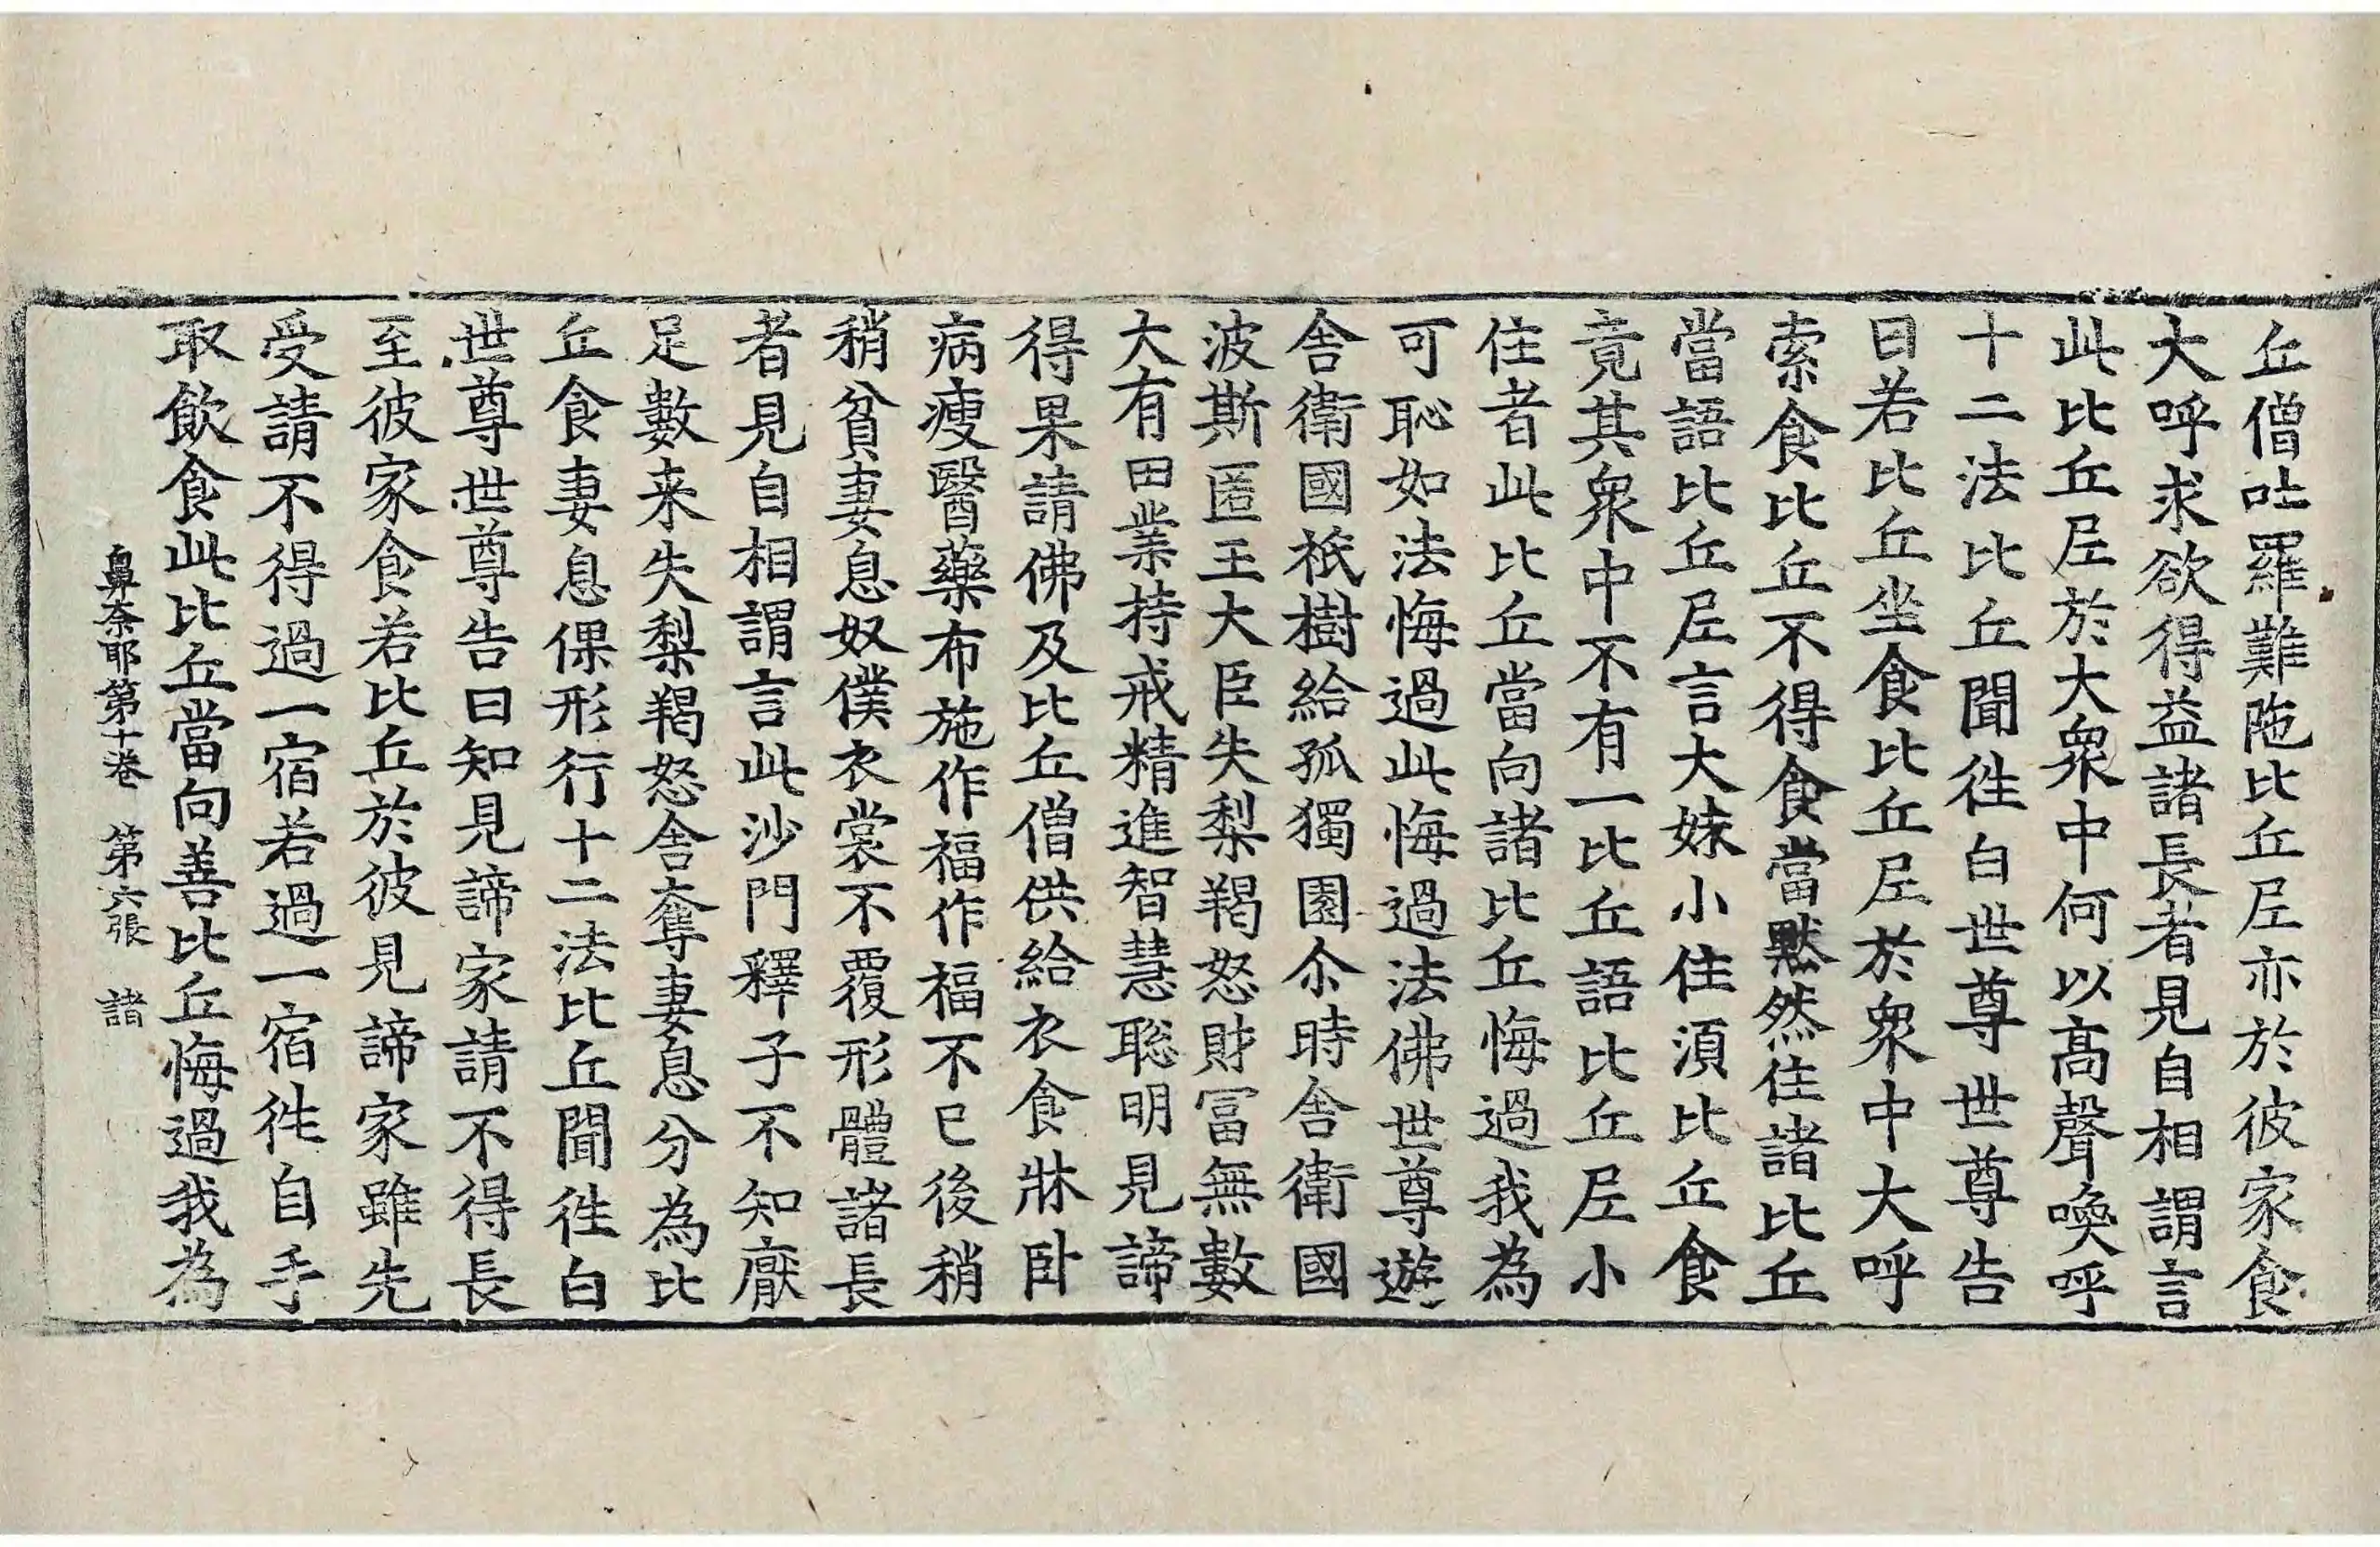 丘僧吐羅難陁比丘尼亦於彼家食
大呼求欲得益諸長者見自相謂言
此比丘尼於大衆中何以高聲喚呼
十二法比丘聞徃白世尊世尊告
曰若比丘坐食比丘尼於衆中大呼
索食比丘不得食當默然住諸比丘
當語比丘尼言大妹小住須比丘食
竟其衆中不有一比丘語比丘尼小
住者此比丘當向諸比丘悔過我為
可恥如法悔過此悔過法佛世尊遊
舎衛國祇樹給孤獨園尒時舎衛國
波斯匿王大臣失梨羯怒財冨無數
大有田業持戒精進智慧聡明見諦
得果請佛及比丘僧供給衣食牀卧
病瘦醫藥布施作福作福不已後稍
稍貧妻息奴僕衣裳不覆形體諸長
者見自相謂言此沙門釋子不知厭
足數来失梨羯怒舎奪妻息分為比
丘食妻息倮形行十二法比丘聞徃白
世尊世尊告曰知見諦家請不得長
至彼家食若比丘於彼見諦家雖先
受請不得過一宿若過一宿徃自手
取飲食此比丘當向善比丘悔過我為
鼻奈耶第十卷　第六張　諸